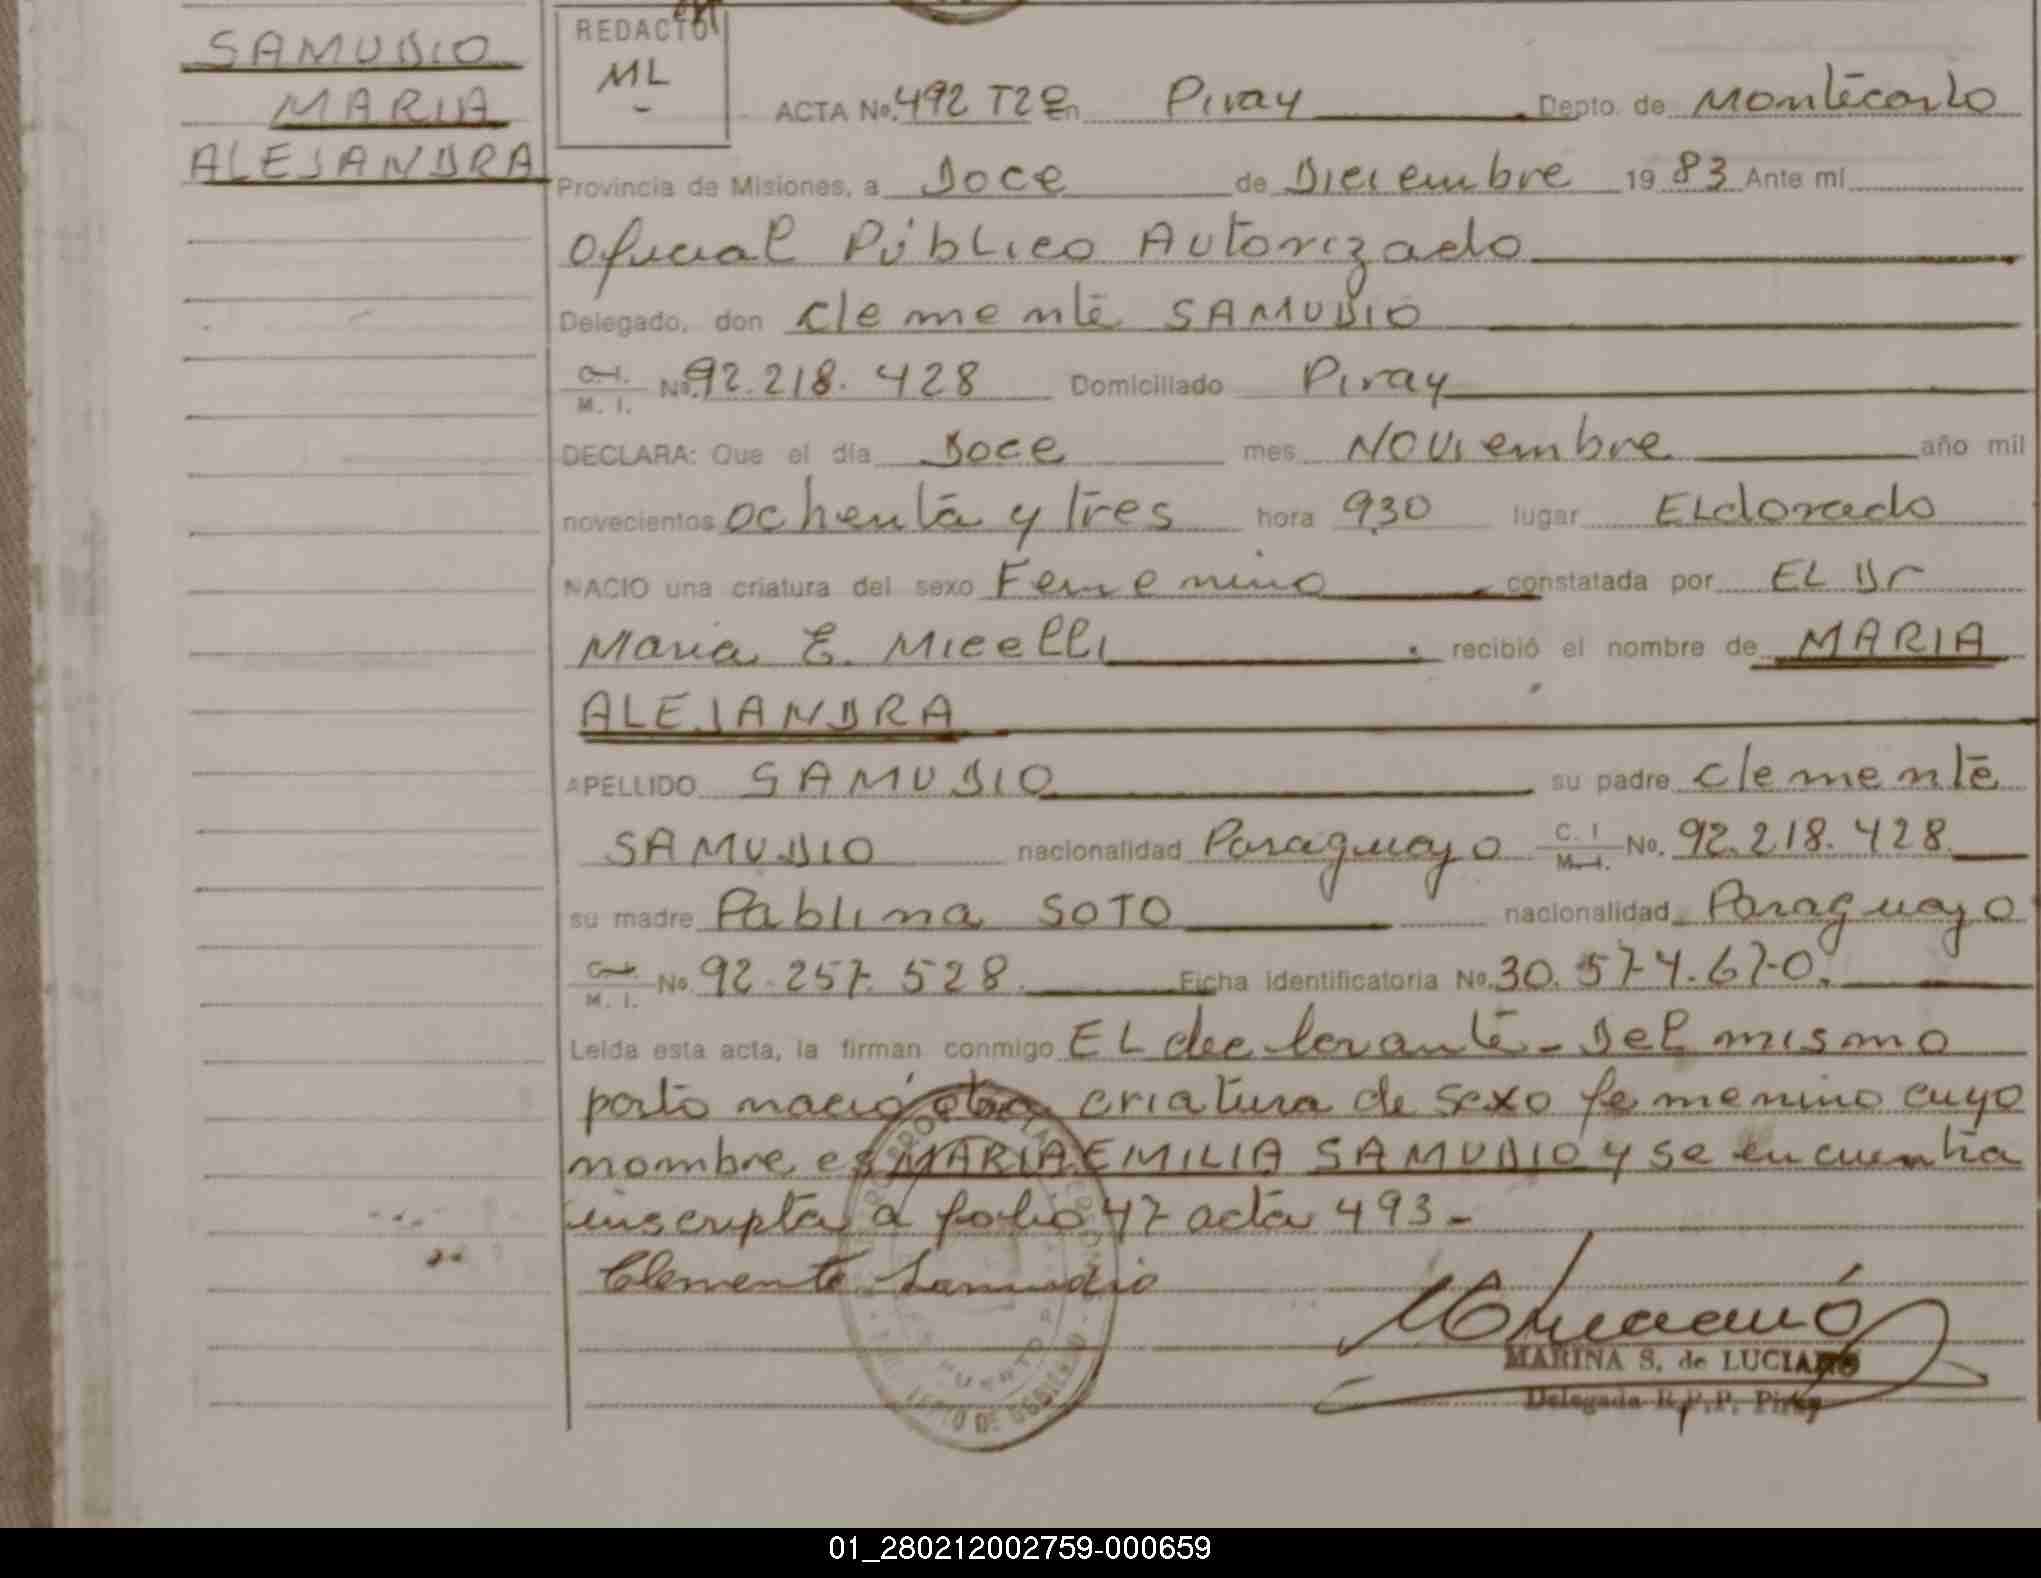 SAMUDIO
MARIA
ALEJANDRA
REDACTO
ML
ACTA No. 492 T2º En Piray Depto. de Montecarlo
Provincia de Misiones, a Doce de Diciembre 19 83 Ante mí
Oficial Público Autorizado
Delegado, don Clemente SAMUDIO
C. I. M. I. No. 92.218.428 Domiciliado Piray
DECLARA: Que el día Doce mes Noviembre año mil
novecientos ochenta y tres hora 9,30 lugar Eldorado
NACIO una criatura del sexo Femenino constatada por EL Dr
Maria E. Micelli recibió el nombre de MARIA
ALEJANDRA
APELLIDO SAMUDIO su padre Clemente
SAMUDIO nacionalidad Paraguayo C. I M. I. No. 92.218.428
su madre Pablina SOTO nacionalidad Paraguayo
C. I. M. I. No 92.257.528 Ficha identificatoria No. 30.574.670.
Leída esta acta, la firman conmigo EL declarante - Del mismo
parto nació otra criatura de sexo femenino cuyo
nombre es MARIA EMILIA SAMUDIO y se encuentra
inscripta a folio 47 acta 493-
Clemente Samudio
MARINA S. de LUCIANO
Delegada R.P.P. Piray
01_280212002759-000659